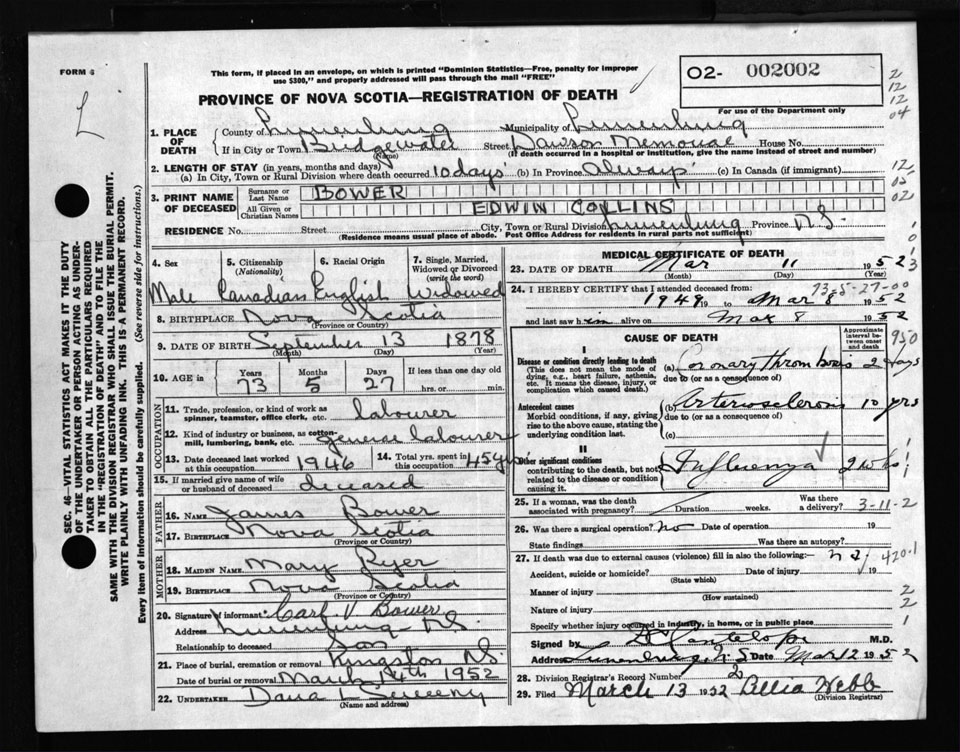 FORM 6
This form, if placed in an envelope, on which is printed "Dominion Statistics—Free, penalty for improper
use $300," and properly addressed will pass through the mail "FREE"
PROVINCE OF NOVA SCOTIA—REGISTRATION OF DEATH
O2- 002002
For use of the Department only
L
2
12
12
04
1. PLACE OF DEATH
County of Lunenburg Municipality of Lunenburg
If in City or Town Bridgewater Street Dawson Memorial House No.
(Name) (If death occurred in a hospital or institution, give the name instead of street and number)
2. LENGTH OF STAY (in years, months and days)
(a) In City, Town or Rural Division where death occurred 10 days (b) In Province always (c) In Canada (if immigrant)
12
02
3. PRINT NAME OF DECEASED
Surname or Last Name BOWER
All Given or Christian Names EDWIN COLLINS
RESIDENCE No. Street City, Town or Rural Division Lunenburg Province N.S.
(Residence means usual place of abode. Post Office Address for residents in rural parts not sufficient)
4. Sex Male
5. Citizenship (Nationality) Canadian
6. Racial Origin English
7. Single, Married, Widowed or Divorced (write the word) Widowed
8. BIRTHPLACE Nova Scotia
(Province or Country)
9. DATE OF BIRTH September 13 1878
(Month) (Day) (Year)
10. AGE in Years 73 Months 5 Days 27 If less than one day old
hrs. or min.
OCCUPATION
11. Trade, profession, or kind of work as spinner, teamster, office clerk, etc. labourer
12. Kind of industry or business, as cotton-mill, lumbering, bank, etc. general labourer
13. Date deceased last worked at this occupation 1946
14. Total yrs. spent in this occupation 45 yrs
15. If married give name of wife or husband of deceased deceased
FATHER
16. NAME James Bower
17. BIRTHPLACE Nova Scotia
(Province or Country)
MOTHER
18. MAIDEN NAME Mary Ryer
19. BIRTHPLACE Nova Scotia
(Province or Country)
20. Signature of informant Carl V Bower
Address Lunenburg N.S.
Relationship to deceased Son
21. Place of burial, cremation or removal Kingston N.S.
Date of burial or removal March 14th 1952
22. UNDERTAKER Dana L Sweeny
(Name and address)
MEDICAL CERTIFICATE OF DEATH
23. DATE OF DEATH Mar 11 1952
(Month) (Day) (Year)
24. I HEREBY CERTIFY that I attended deceased from 73-5-27-00
1949 to Mar 8 1952
and last saw him alive on Mar 8 1952
CAUSE OF DEATH
Approximate interval between onset and death
950
I
Disease or condition directly leading to death
(This does not mean the mode of dying, e.g., heart failure, asthenia, etc. It means the disease, injury, or complication which caused death.)
(a) Coronary thrombosis 2 days
due to (or as a consequence of)
Antecedent causes
Morbid conditions, if any, giving rise to the above cause, stating the underlying condition last.
(b) Arteriosclerosis 10 yrs
due to (or as a consequence of)
(c)
II
Other significant conditions
contributing to the death, but not related to the disease or condition causing it.
Influenza 2 wks
25. If a woman, was the death associated with pregnancy? Duration weeks. Was there a delivery? 3-11-2
26. Was there a surgical operation? no Date of operation 19
State findings Was there an autopsy?
27. If death was due to external causes (violence) fill in also the following:
420.1
Accident, suicide or homicide? Date of injury 19
(State which)
Manner of injury
(How sustained)
2
Nature of injury
2
Specify whether injury occurred in industry, in home, or in public place
1
Signed by M.D.
Address Lunenburg, N.S Date Mar 12 1952
28. Division Registrar's Record Number 2
29. Filed March 13 1952 Webb
(Division Registrar)
SEC. 46—VITAL STATISTICS ACT MAKES IT THE DUTY
OF THE UNDERTAKER OR PERSON ACTING AS UNDER-
TAKER TO OBTAIN ALL THE PARTICULARS REQUIRED
IN THE "REGISTRATION OF DEATH" AND TO FILE THE
SAME WITH THE DIVISION REGISTRAR WHO SHALL ISSUE THE BURIAL PERMIT.
WRITE PLAINLY WITH UNFADING INK. THIS IS A PERMANENT RECORD.
Every item of information should be carefully supplied. (See reverse side for instructions.)